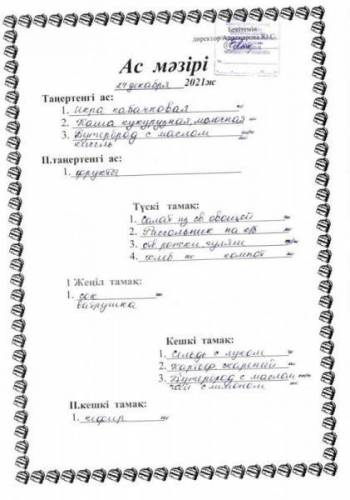 Бекітемін
директор
Ас мәзірі
24 декабря 2021ж
Таңертенгі ас:
1. Икра кабачковая
2. Каша кукурузная молочная
3. Бутерброд с маслом
кисель
II.таңертенгі ас:
1. фрукты
Түскі тамақ:
1. Салат из св овощей
2. Рассольник на к/б
3. рожки гуляш
4. хлеб компот
1 Жеңіл тамақ:
1. сок
ватрушка
Кешкі тамақ:
1. Сельдь с луком
2. Картоф жареный
3. Бутерброд с маслом
чай с лимоном
II.кешкі тамақ:
1. кефир